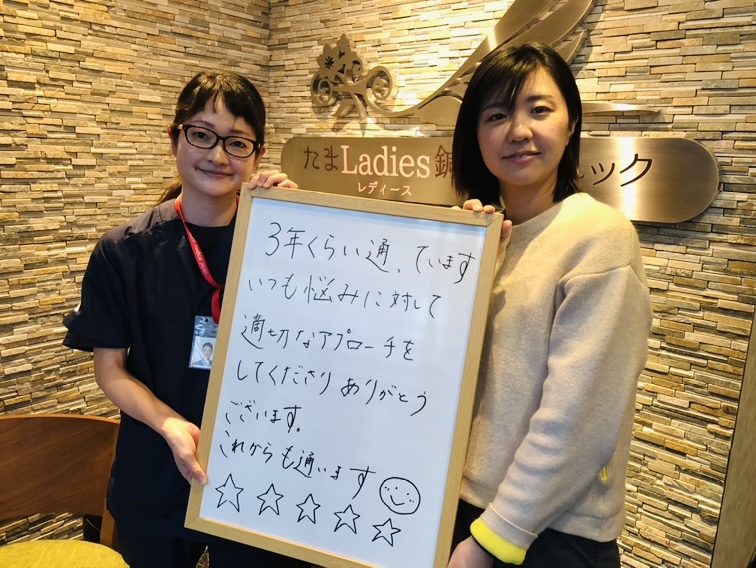 たまLadies鍼
レディース
ック
3年くらい通っています
いつも悩みに対して
適切なアプローチを
してくださり ありがとう
ございます。
これからも通います